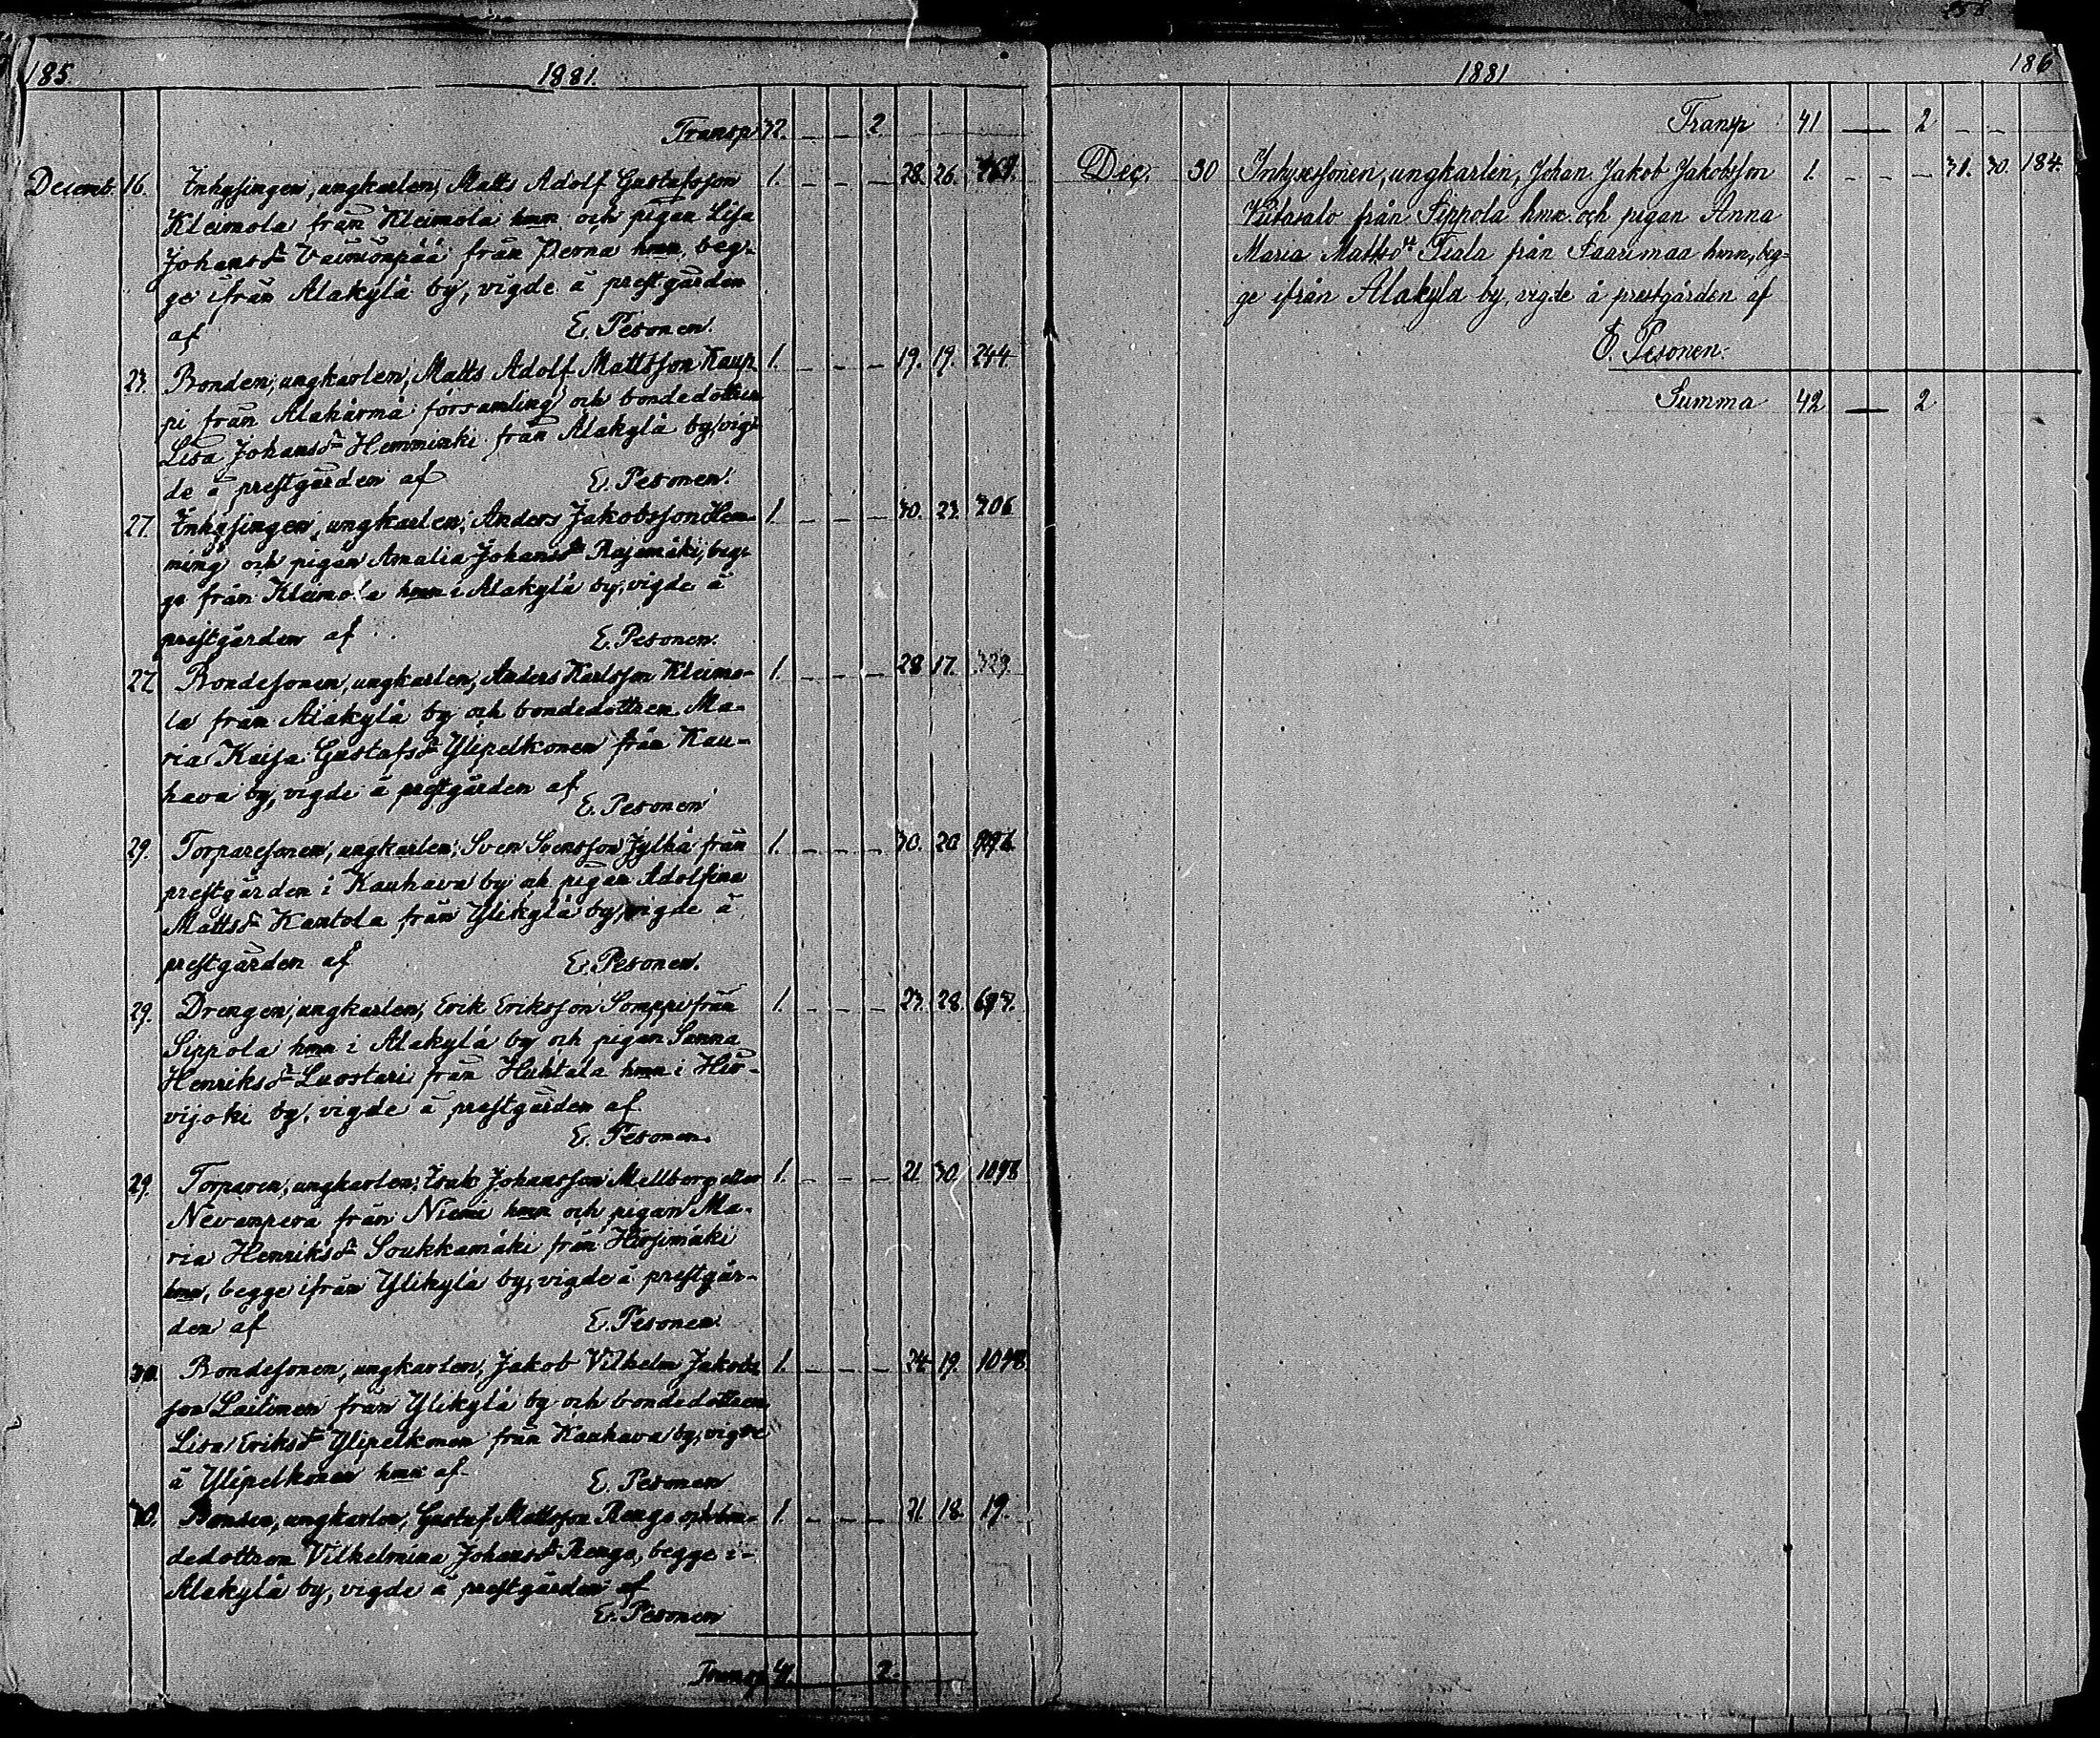 185. 1881.
Transp. 32. — — 2.
Decemb. 16. Inhysingen, ungkarlen, Matts Adolf Gustafsson 1. — — — 28. 26.
Kleimola från Kleimola hmn och pigan Lisa
Johansdr Väinionpää från Perna hmn, beg-
ge ifrån Alakylä by, vigde å prestgården
af E. Pesonen.
23. Bonden, ungkarlen, Matts Adolf Mattsson Kaup- 1. — — — 19. 19. 244
pi från Alahärmä församling och bondedottren
Lisa Johansdr Hemminki från Alakylä by, vig-
de å prestgården af E. Pesonen.
27. Inhysingen, ungkarlen, Anders Jakobsson Hem- 1. — — — 30. 23. 306
ming och pigan Amalia Johansdr Rajamäki, beg-
ge från Kleimola hmn i Alakylä by, vigde å
prestgården af E. Pesonen.
27 Bondesonen, ungkarlen, Anders Karlsson Kleimo- 1. — — — 28 17. 329.
la från Alakylä by och bondedottren Ma-
ria Kaisa Gustafsdr Ylipelkonen från Kau-
hava by, vigde å prestgården af
E. Pesonen
29. Torparesonen, ungkarlen, Sven Svensson Jylhä från 1. — — — 30. 20
prestgården i Kauhava by och pigan Adolfina
Mattsdr Kantola från Ylikylä by, vigde å
prestgården af E. Pesonen.
29. Drengen, ungkarlen, Erik Eriksson Somppi från 1. — — — 23. 28.
Sippola hmn i Alakylä by och pigan Sanna
Henriksdr Luostari från Huhtala hmn i Hir-
vijoki by, vigde å prestgården af
E. Pesonen.
29. Torparen, ungkarlen, Isak Johansson Mellberg eller 1. — — — 21 30. 1098
Nevanpera från Niemi hmn och pigan Ma-
ria Henriksdr Soukkamäki från Hirsimäki
hmn, begge ifrån Ylikylä by, vigde å prestgår-
den af E. Pesonen.
30. Bondesonen, ungkarlen, Jakob Vilhelm Jakobs- 1. — — — 24. 19. 1048
son Laitinen från Ylikylä by och bondedottren
Lisa Eriksdr Ylipelkonen från Kauhava by, vigde
å Ylipelkonen hmn af E. Pesonen
30. Bonden, ungkarlen, Gustaf Mattsson Renga och bon- 1. — — — 21. 18. 19.
dedottren Vilhelmina Johansdr Renga, begge i-
Alakylä by, vigde å prestgården af
E. Pesonen
Transp. 41. 2.
1881 186
Transp 41 — 2 — —
Dec. 30 Inhysessonen, ungkarlen, Johan Jakob Jakobsson 1. — — — 31. 30. 184.
Viitasalo från Sippola hmn och pigan Anna
Maria Mattsdr Tiala från Saarimaa hmn, beg-
ge ifrån Alakylä by, vigde å prestgården af
E. Pesonen.
Summa 42 — 2